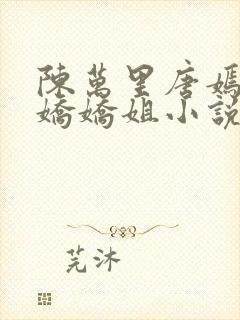 陳萬里唐嫣
嬌嬌姐小說
芫沐